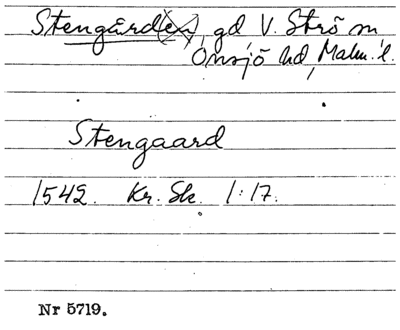 Stengård(en), gd V. Strö sn
Onsjö hd, Malm. l.
Stengaard
1542. Kr. Sk. 1:17.
Nr 5719.